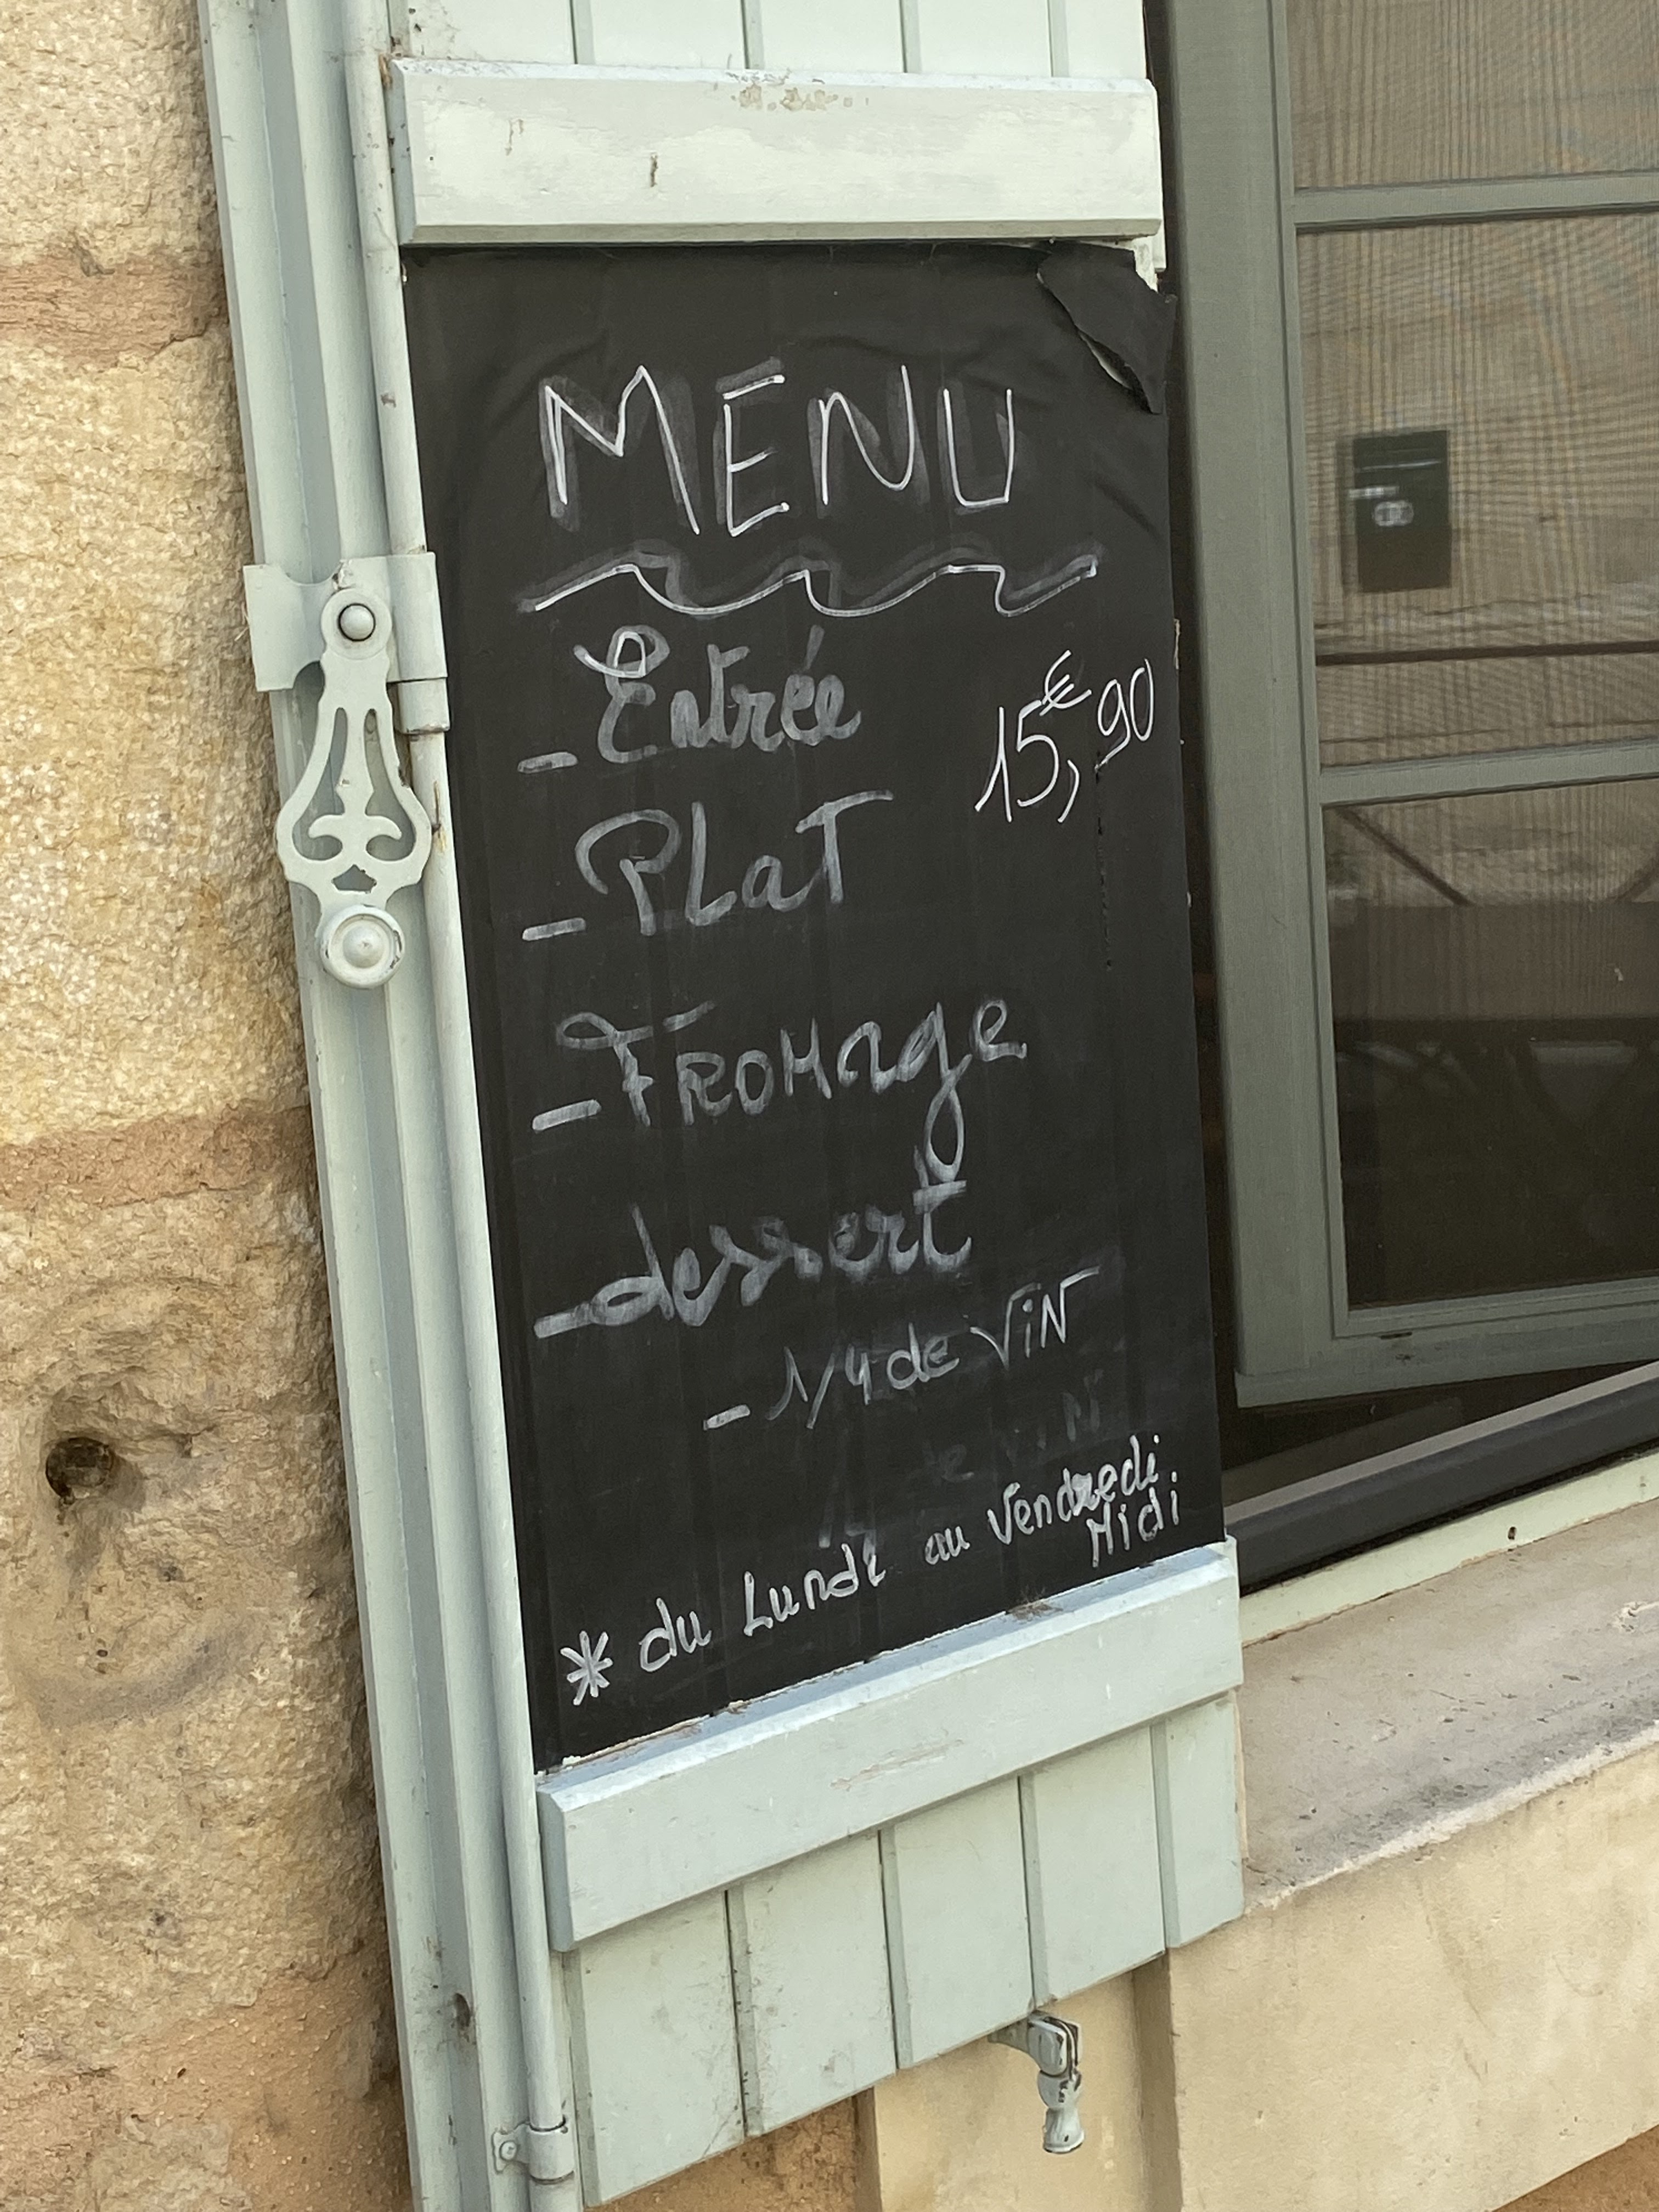 MENU
- Entrée
15,€90
- PLaT
- FROMage
- dessert
- 1/4 de ViN
* du Lundi au Vendredi
Midi